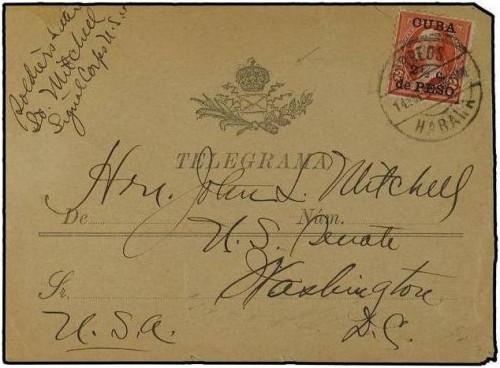 Soldiers
Mitchell
Signal Corps U.S.
CUBA
2½ c.
de PESO
HABANA
TELEGRAMA
Hon. John L. Mitchell
De Núm.
U.S. Senate
Sr. Washington
U.S.A. D.C.